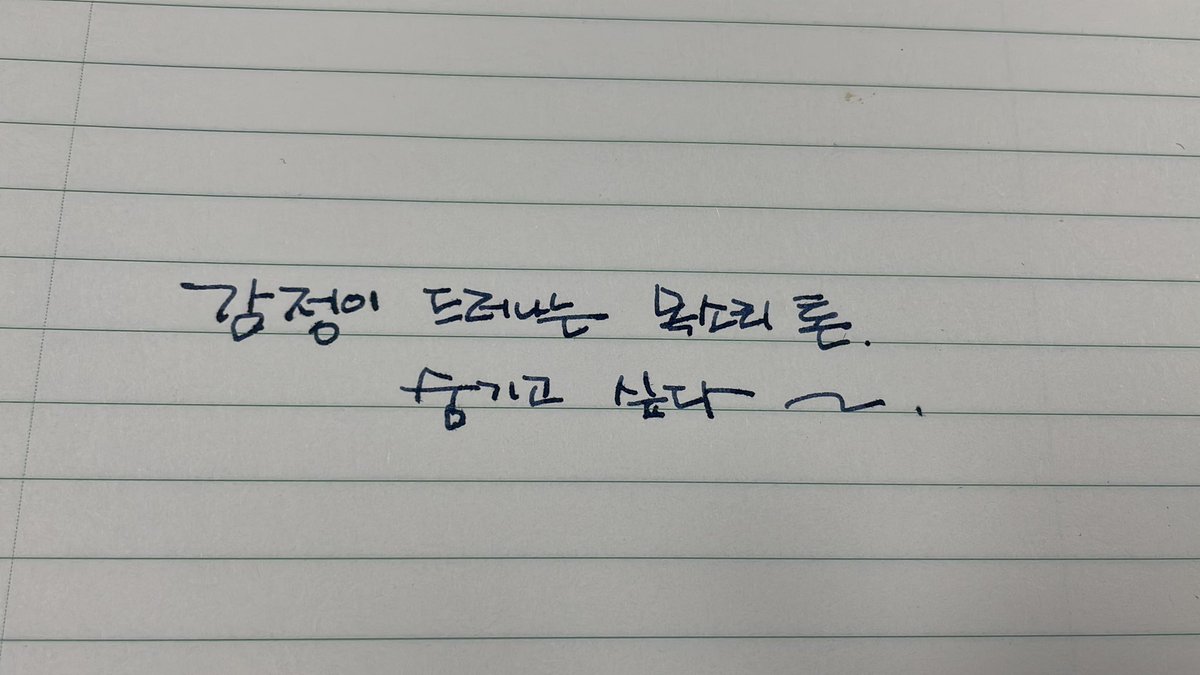 감정이 드러나는 목소리 톤.
숨기고 싶다 ~.